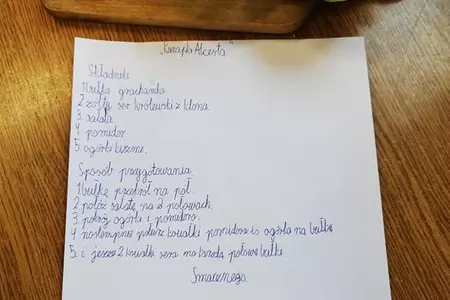 „Kanapka Alcesta"
Składniki
1 bułka grachamka
2. żółty ser królewski z
3. sałata
4 pomidor
5. ogórki kiszone.
Sposób przygotowania
1 bułkę przekrój na pół.
2 połóż sałatę na 2 połówkach.
3 pokrój ogórki i pomidora.
4 następnie połusz kowałki pomidora io ogórka na bułke
5. i jeszce 2 kowałki sera na każdą połowe bułki.
Smacznego.